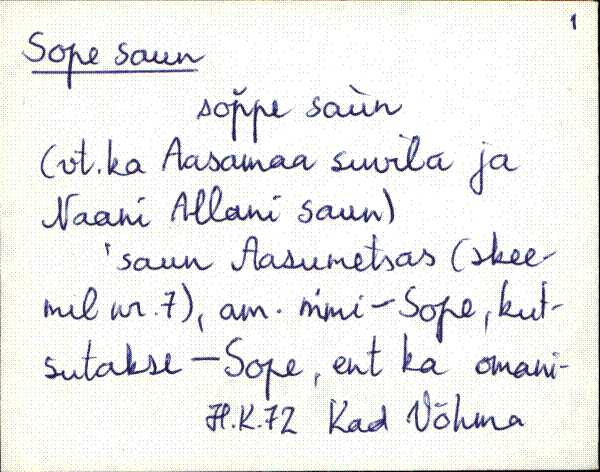 1
Sope saun
sop̆pe saùn
(vt.ka Aasamaa suvila ja
Naani Allani saun)
'saun Aasumetsas (skee-
mil nr.7), am. nimi – Sope, kut-
sutakse – Sope, ent ka omani-
H.K.72 Kad Võhma